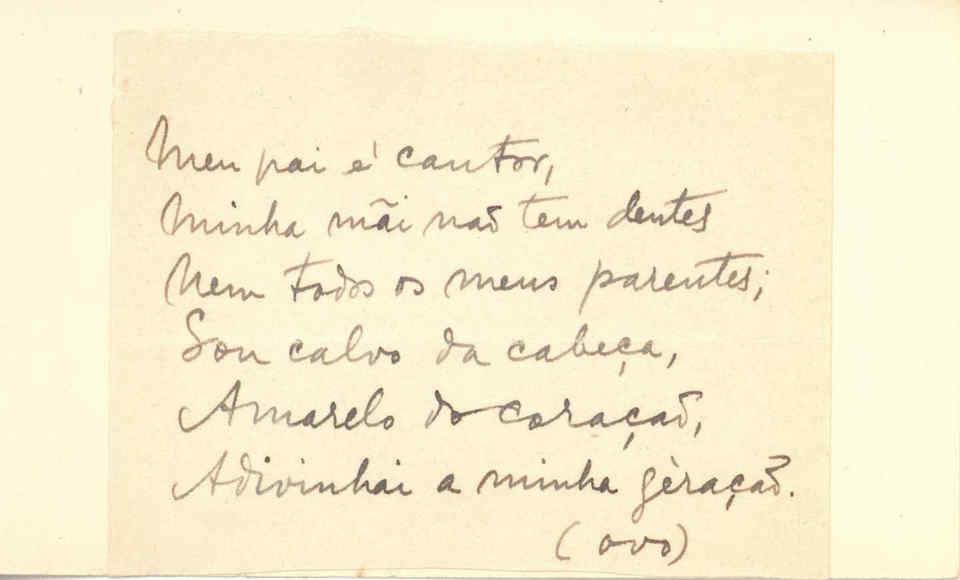 Meu pai é cantor,
Minha mãi não tem dentes
Nem todos os meus parentes;
Sou calvo da cabeça,
Amarelo do coração,
Adivinhai a minha gèração.
(ovo)